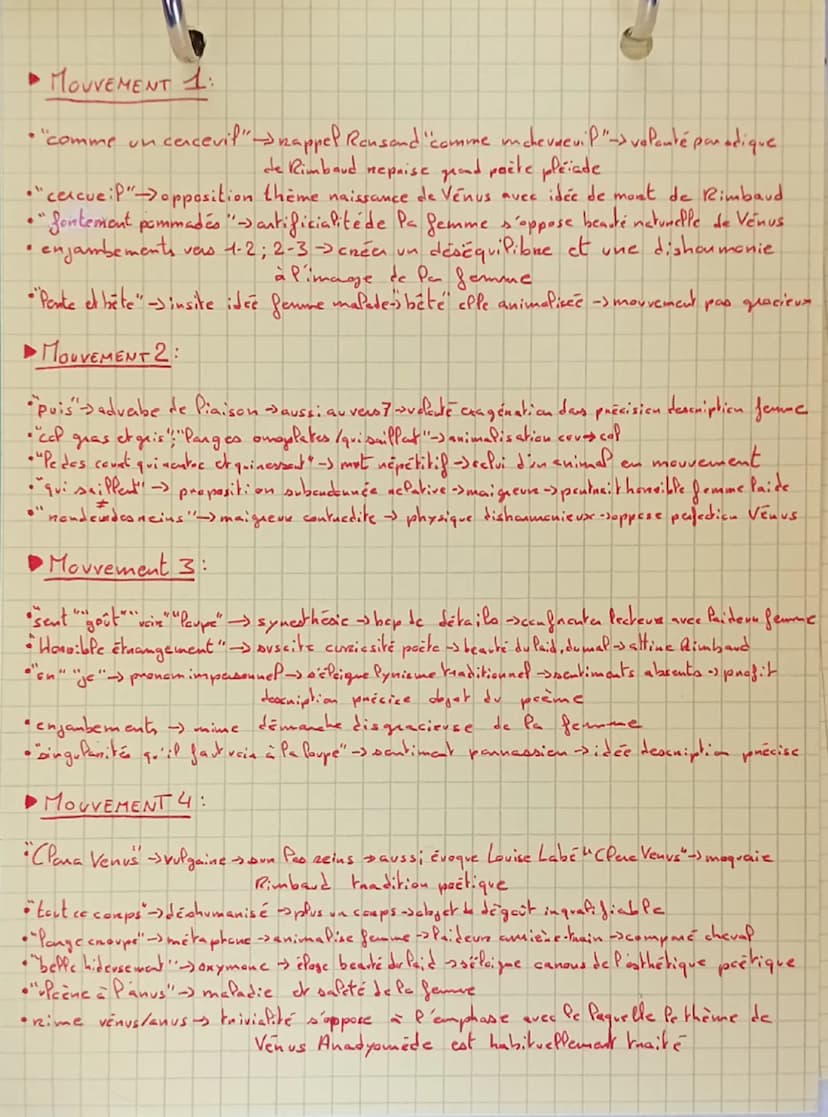 ▶ MOUVEMENT 1:
• "comme un cercueil" → rappel Ronsard "comme un chevreuil" → volonté parodique
de Rimbaud reprise grand poète pléiade
• "cercueil" → opposition thème naissance de Vénus avec idée de mort de Rimbaud
• "fortement pommadés" → artificialité de la femme s'oppose beauté naturelle de Vénus
• enjambements vers 1-2 ; 2-3 → créer un déséquilibre et une disharmonie
à l'image de la femme
• "lente et bête" → insite idée femme malade → "bête" elle animalisée → mouvement pas gracieux
▶ MOUVEMENT 2:
• "puis" → adverbe de liaison → aussi au vers 7 → volonté exagération dans précision description femme
• "col gras et gris"; "larges omoplates / qui saillent" → animalisation cou → col
• "le dos court qui rentre et qui ressort" → mvt répétitif → celui d'un animal en mouvement
• "qui saillent" → proposition subordonnée relative → maigreur → portrait horrible femme laide
≠
• "rondeurs des reins" → maigreur contredite → physique disharmonieux → oppose perfection Vénus
▶ Mouvement 3:
• "sent" "goût" "voir" "loupe" → synesthésie → bcp de détails → confronter lecteur avec laideur femme
• "Horrible étrangement" → suscite curiosité poète → beauté du laid, du mal → attire Rimbaud
• "on" "je" → pronom impersonnel → s'éloigne lyrisme traditionnel → sentiments absents → profit
description précise objet du poème
• enjambements → mime démarche disgracieuse de la femme
• "singularités qu'il faut voir à la loupe" → sentiment parnassien → idée description précise
▶ MOUVEMENT 4:
"Clara Venus" → vulgaire → sur les reins → aussi évoque Louise Labé "Clere Venus" → moquerie
Rimbaud tradition poétique
• "tout ce corps" → déshumanisé → plus un corps → objet de dégoût inqualifiable
• "large croupe" → métaphore → animalise femme → laideur arrière train → comparé cheval
• "belle hideusement" → oxymore → éloge beauté du laid → s'éloigne canons de l'esthétique poétique
• "ulcère à l'anus" → maladie et saleté de la femme
• rime vénus/anus → trivialité s'oppose à l'emphase avec le laquelle le thème de
Vénus Anadyomède est habituellement traité